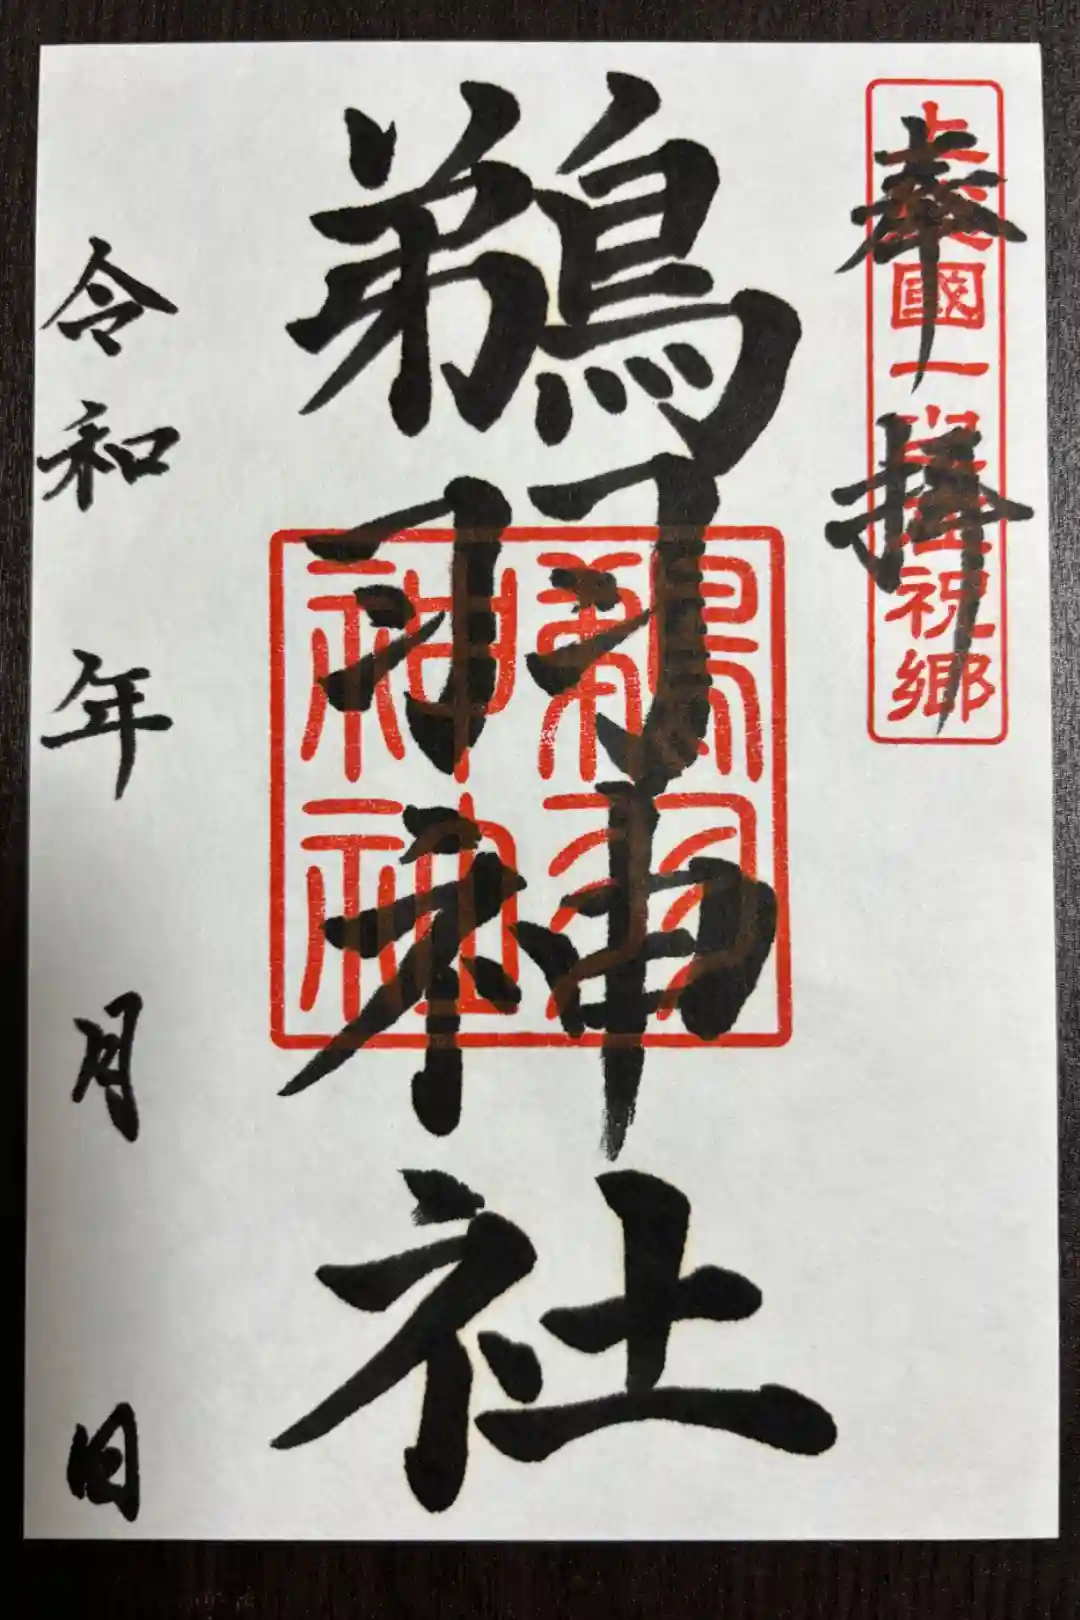 奉拝
上総國一 祝郷
鵜羽神社
鵜羽
神社
令和 年 月 日